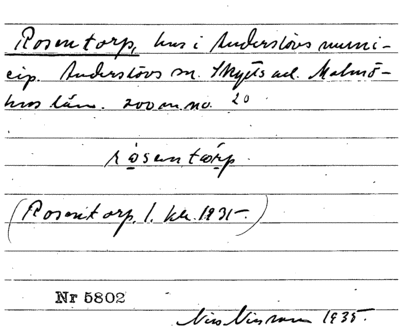 Rosentorp, hus i Anderslövs muni-
cip. Anderslövs sn. Skytts hd. Malmö-
hus län. zoo m. no. 20
rosentorp
(Rosentorp, 1. ka. 1931-)
Nr 5802
Nils Nilsson 1935.